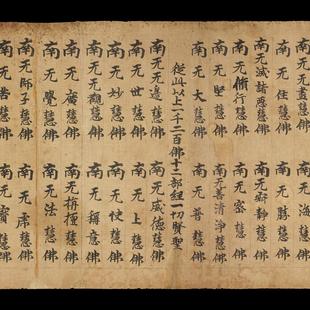 南无无盡慧佛 南无海慧佛
南无住慧佛 南无勝慧佛
南无滅諸惡慧佛 南无寂靜慧佛
南无脩行慧佛 南无密慧佛
南无堅慧佛 南无善清淨慧佛
南无大慧佛 南无普慧佛
從此以上一千二百佛十二部經一切賢聖
南无无邊慧佛 南无威德慧佛
南无世慧佛 南无上慧佛
南无妙慧佛 南无慧佛
南无觀慧佛 南无稱意佛
南无廣慧佛 南无栴檀慧佛
南无覺慧佛 南无法慧佛
南无師子慧佛 南无虎慧佛
南无善慧佛 南无慧佛